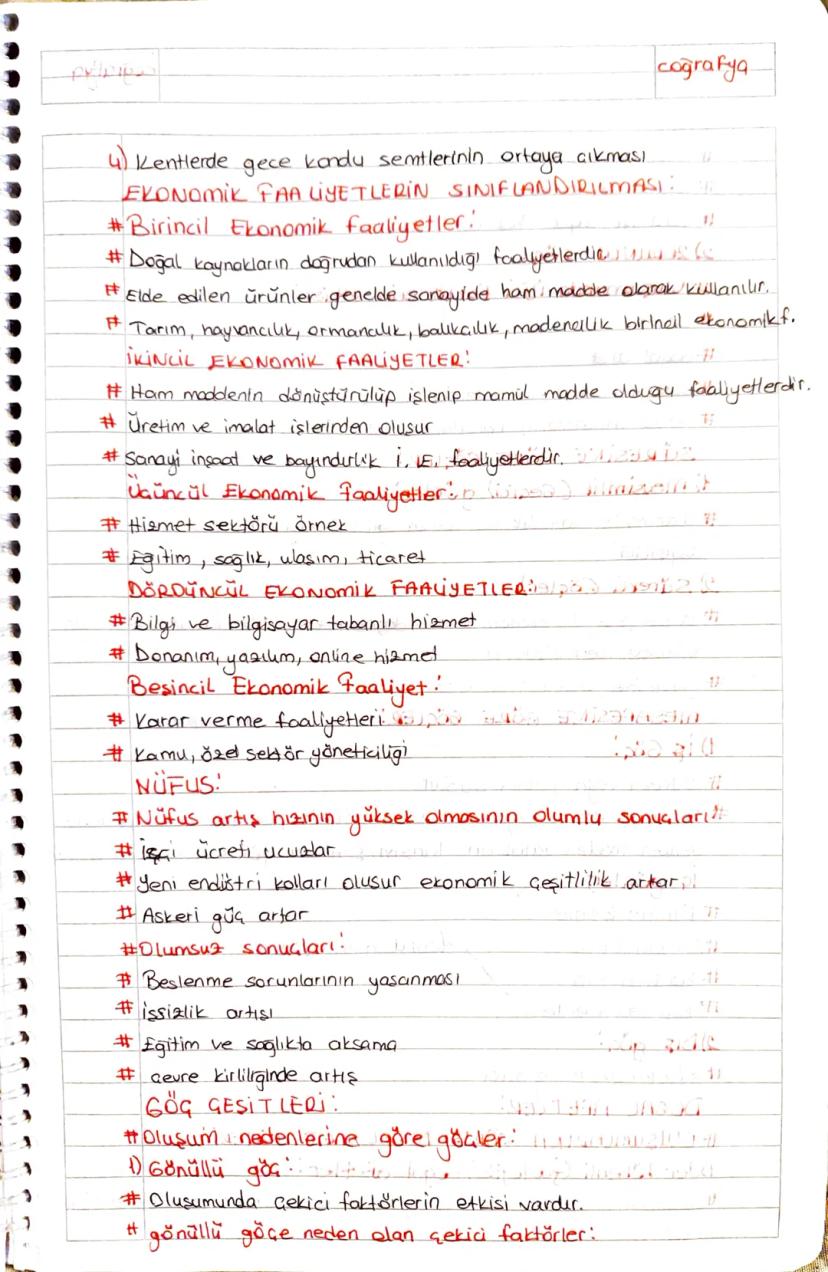 coğrafya
4) Kentlerde gece kondu semtlerinin ortaya cıkması
EKONOMİK FAALİYETLERİN SINIFLANDIRILMASI:
# Birincil Ekonomik faaliyetler:
# Doğal kaynakların doğrudan kullanıldığı faaliyetlerdir
# Elde edilen ürünler genelde sanayide ham madde olarak kullanılır.
# Tarım, hayvancılık, ormancılık, balıkcılık, madencilik birincil ekonomik f.
İKİNCİL EKONOMİK FAALİYETLER:
# Ham maddenin dönüştürülüp işlenip mamül madde olduğu faaliyetlerdir.
# Üretim ve imalat işlerinden oluşur
# Sanayi inşaat ve bayındırlık İ. E. faaliyetlerdir.
Üçüncül Ekonomik Faaliyetler:
# Hizmet sektörü örnek
# Eğitim, sağlık, ulaşım, ticaret
DÖRDÜNCÜL EKONOMİK FAALİYETLER:
# Bilgi ve bilgisayar tabanlı hizmet
# Donanım, yazılım, online hizmet
Beşincil Ekonomik Faaliyet:
# Karar verme faaliyetleri
# Kamu, özel sektör yöneticiliği
NÜFUS:
# Nüfus artış hızının yüksek olmasının olumlu sonuçları:
# işçi ücreti ucuzlar
# Yeni endüstri kolları oluşur ekonomik çeşitlilik artar
# Askeri güç artar
# Olumsuz sonuçları:
# Beslenme sorunlarının yaşanması
# işsizlik artışı
# Eğitim ve sağlıkta aksama
# çevre kirliliğinde artış
GÖÇ ÇEŞİTLERİ:
# Oluşum nedenlerine göre göçler:
1) Gönüllü göç:
# Oluşumunda çekici faktörlerin etkisi vardır.
# gönüllü göçe neden olan çekici faktörler: